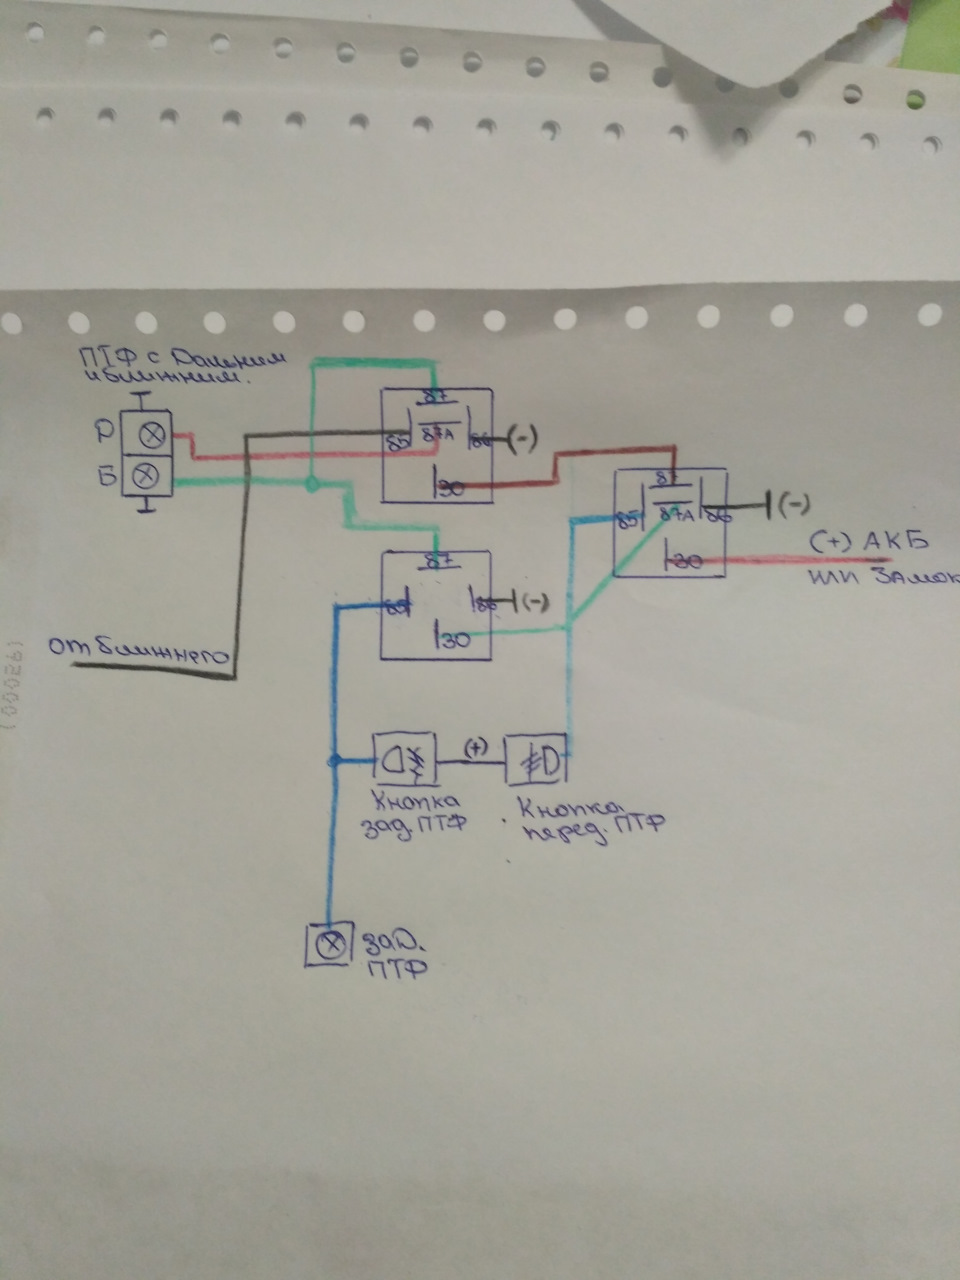 ПТФ с Дальним
и ближним.
Д
Б
87
85
87А
86
(-)
30
87
85
87А
86
(-)
30
(+) АКБ
или Замок
87
86
(-)
30
от ближнего
(+)
Кнопка
зад. ПТФ
Кнопка
перед. ПТФ
зад.
ПТФ